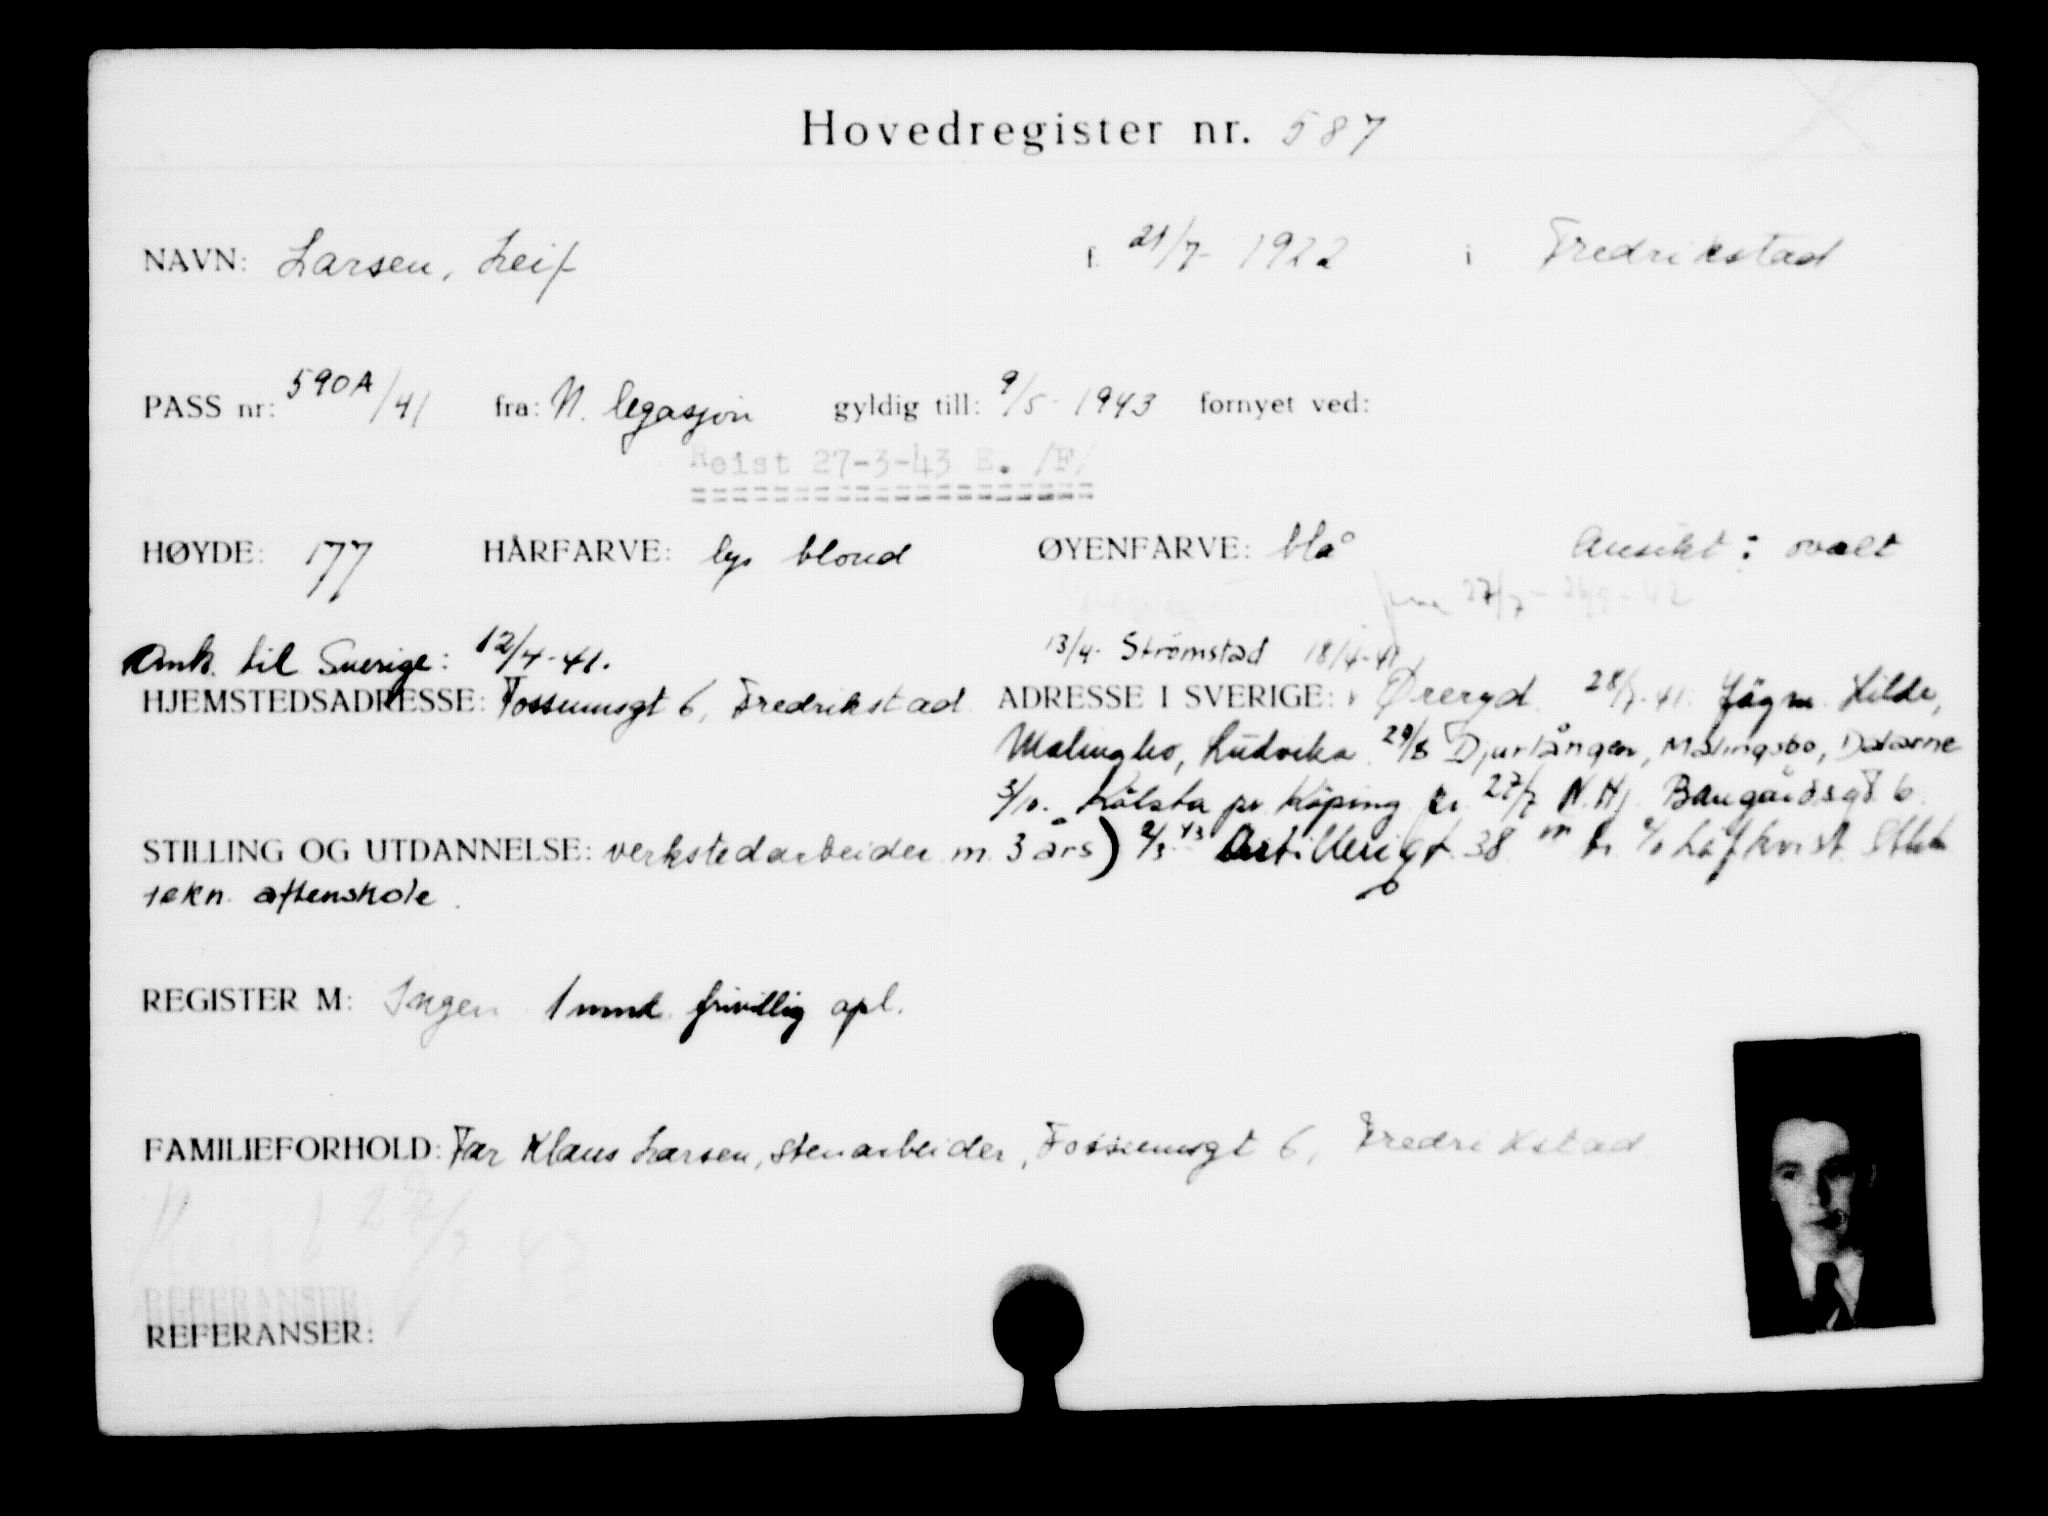 Hovedregister nr. 587
NAVN: Larsen, Leif f. 21/7- 1922 i Fredrikstad
PASS nr: 590A/41 fra: N. legasjon gyldig till: 9/5- 1943 fornyet ved:
Reist 27-3-43 E. /F/
HØYDE: 177 HÅRFARVE: lys blond ØYENFARVE: blå Ansikt: ovalt
27/7-
Ank. til Sverige: 12/4-41. 13/4- Strømstad 18/4-41
HJEMSTEDSADRESSE: Fossumsgt 6, Fredrikstad ADRESSE I SVERIGE: Øreryd 28/7-41. Jägm. Lilde,
Malingbo, Ludvika 29/8 Djurlången, Malingsbo, Dalarne
3/10. Kölsta pr. Köping fr. 27/7 N.Hj. Baugårdsgt 6
STILLING OG UTDANNELSE: verkstedarbeider m. 3 års) 2/3-43 Artillerigt. 38 c/o Löfkvist Sthlm
tekn. aftenskole.
REGISTER M: Ingen 1 mnd. frivillig opl.
FAMILIEFORHOLD: Far Klaus Larsen, stenarbeider, Fossumsgt 6, Fredrikstad
Reist 27/3 43
REFERANSER: